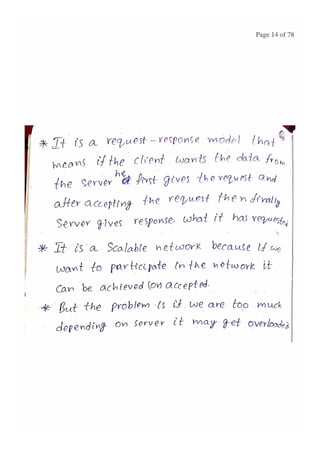 Page 14 of 78
* It is a request-response model that is
means if the client wants the data from
the server he first gives the request and
after accepting the request then finally
Server gives response, what it has requested
* It is a Scalable network because if we
want to participate in the network it
can be achieved (on accepted.
* But the problem is if we are too much
depending on server it may get overloaded.